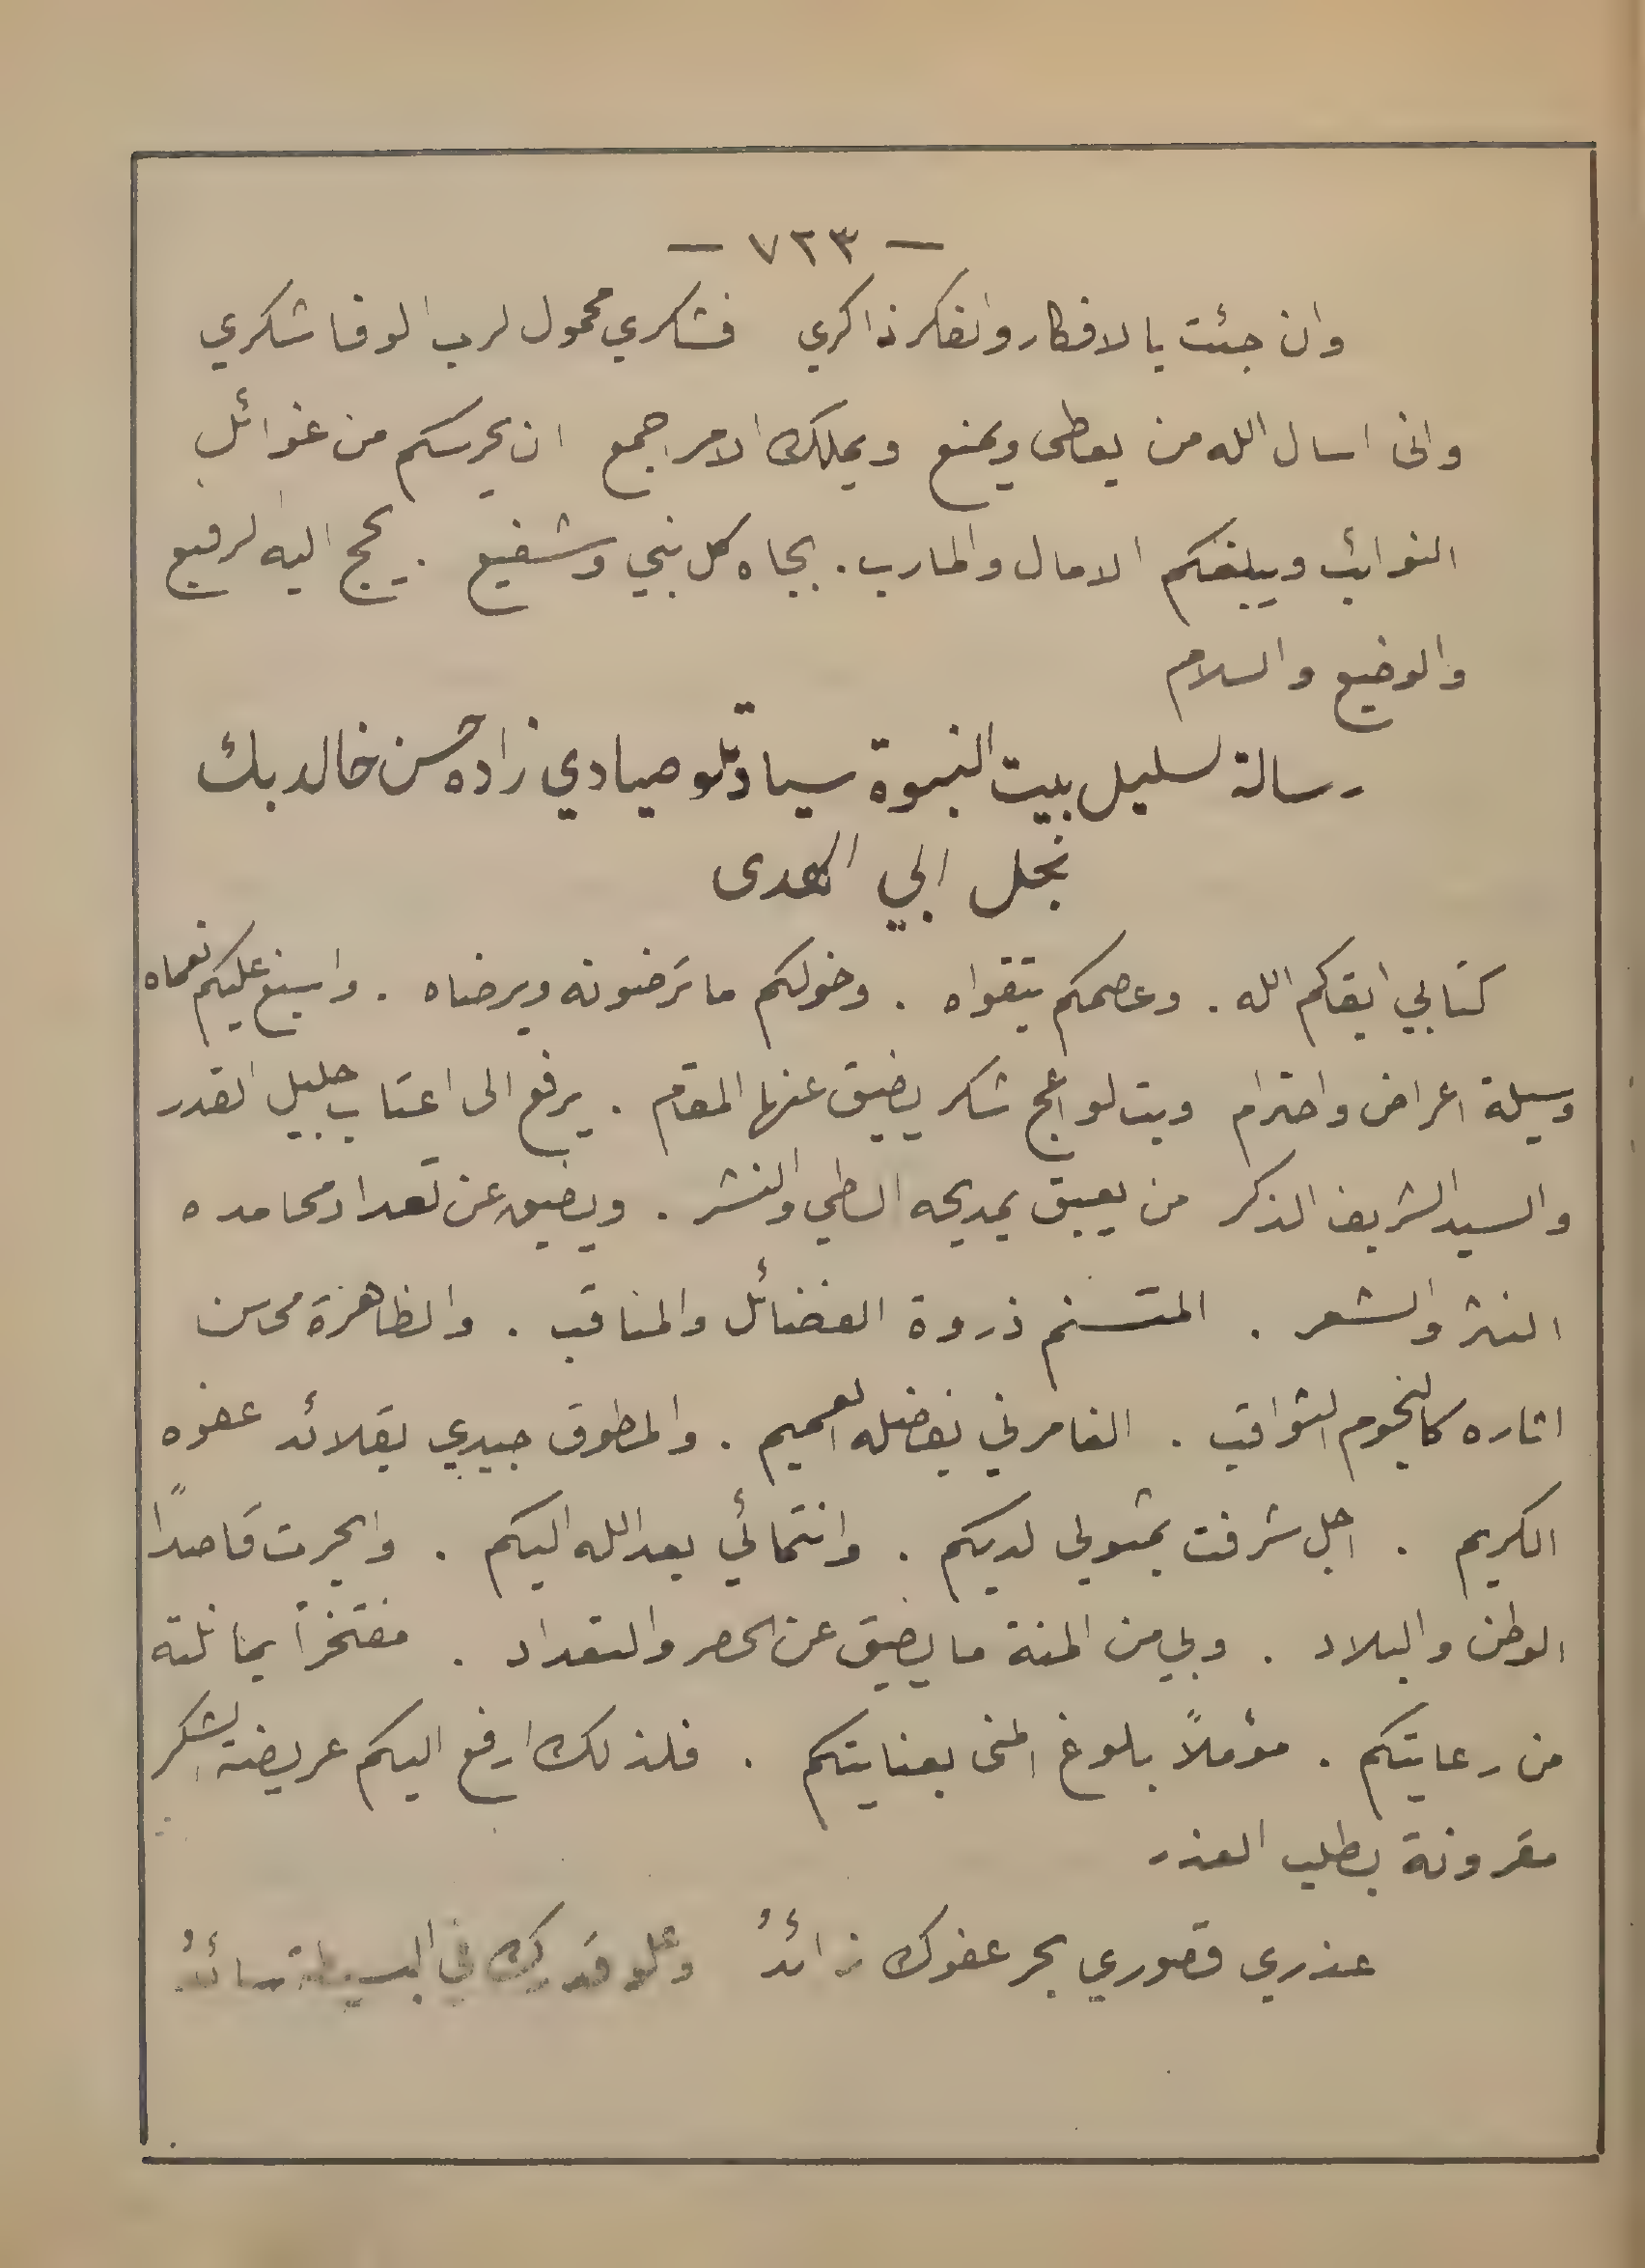 — ٧٢٣ —
وان جئت بالافكار والفكر ذاكري فشكري محمول لرب الوفا شكري
واني اسال الله من يعطي ويمنع ويملك الامر اجمع ان يحرسكم من غوائل
النوائب ويبلغكم الامال والمارب . بجاه كل نبي وشفيع . يحج اليه الرفيع
والوضيع والسلام
رسالة لسليل بيت النبوة سيادتلو صيادي زاده حسن خالد بك
نجل ابي الهدى
كتابي ابقاكم الله . وعصمكم بتقواه . وخولكم ما ترضونه ويرضاه . واسبغ عليكم نعماه
وسيلة اعراض واحترام وبث لواعج شكر يضيق عنها المقام . يرفع الى اعتاب جليل القدر
والسيد الشريف الذكر من يعبق بمديحه الطي والنشر . ويضيق عن تعداد محامده
النثر والشعر . المتسنم ذروة الفضائل والمناقب . والظاهرة محاسن
اثاره كالنجوم الثواقب . الغامرني بفضله العميم . والمطوق جيدي بقلائد عفوه
الكريم . اجل شرفت بمثولي لديكم . وانتمائي بعد الله اليكم . وابحرت قاصدًا
الوطن والبلاد . وبي من المنة ما يضيق عن الحصر والتعداد . مفتخراً بما نلته
من رعايتكم . مؤملاً بلوغ المنى بعنايتكم . فلذلك ارفع اليكم عريضة الشكر
مقرونة بطلب العذر
عذري قصوري بحر عفوك زائدُ وعلو قدرك في البسيطة سائدُ